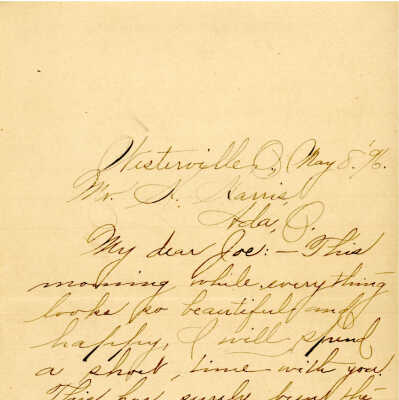 Westerville, O. May 8, '96.
Mr. K. Harris
Ada, O.
My dear Joe: - This
morning while everything
looks so beautiful and
happy, I will spend
a short time with you.
This has surely been the